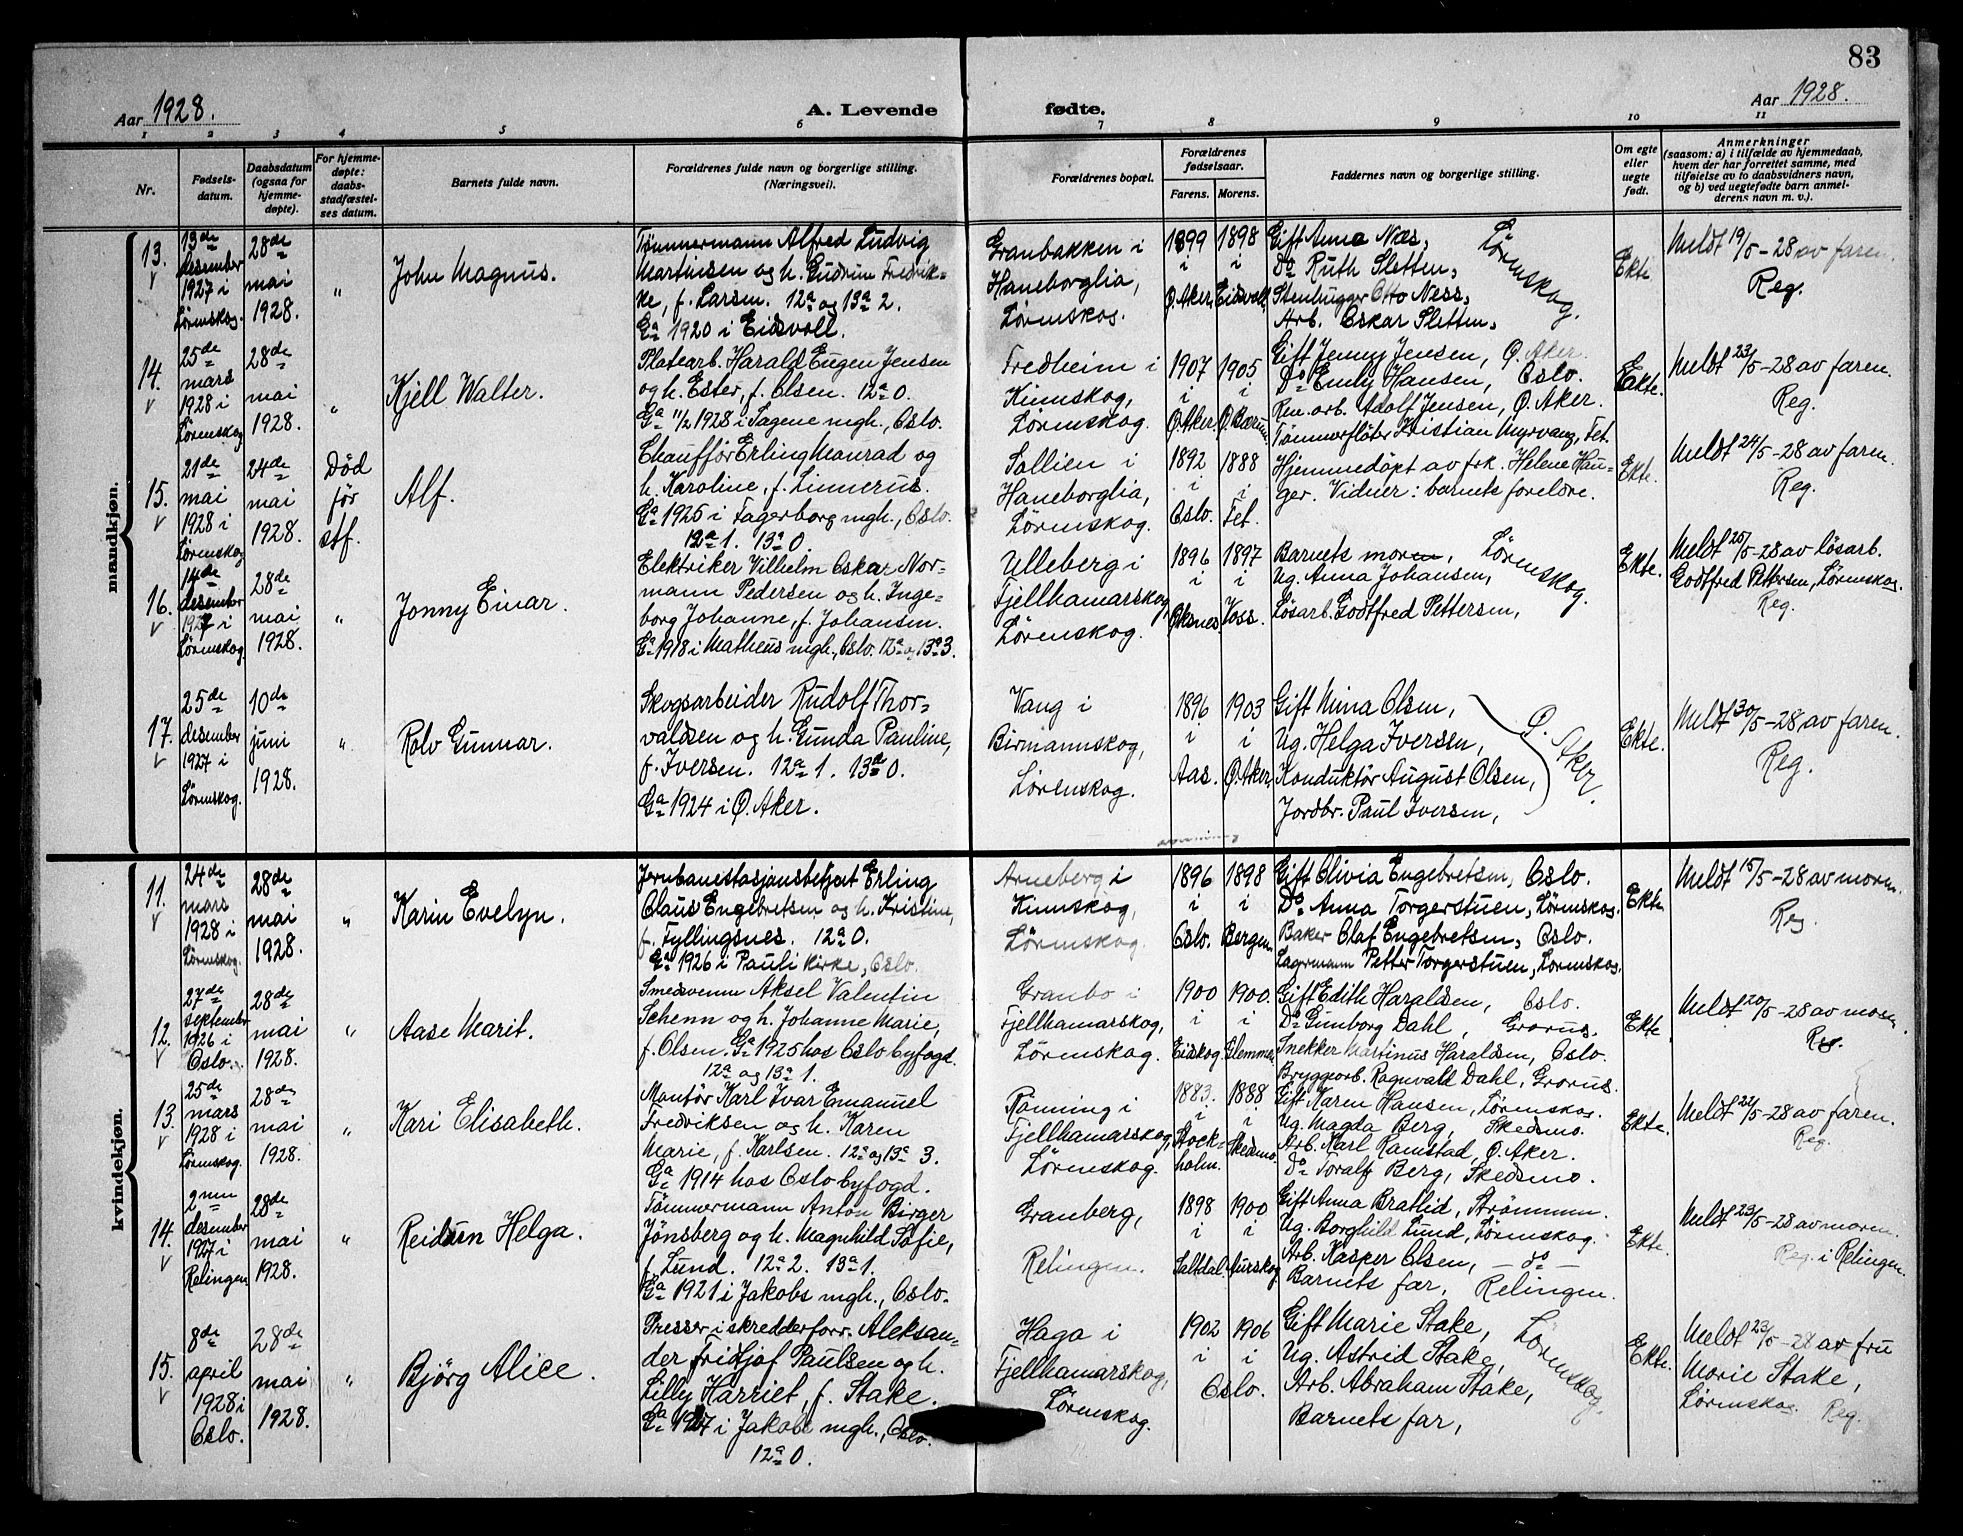 83
Aar 1928.
A. Levende fødte.
Aar 1928.
1 2 3 4 5 6 7 8 9 10 11
Nr.
Fødsels-
datum.
Daabsdatum
(ogsaa for
hjemme-
døpte).
For hjemme-
døpte:
daabs-
stadfæstel-
ses datum.
Barnets fulde navn.
Forældrenes fulde navn og borgerlige stilling.
(Næringsvei).
Forældrenes bopæl.
Forældrenes
fødselsaar.
Farens. Morens.
Faddernes navn og borgerlige stilling.
Om egte
eller
uegte
født.
Anmerkninger
(saasom: a) i tilfælde av hjemmedaab,
hvem der har forrettet samme, med
tilføielse av to daabsvidners navn,
og b) ved uegtefødte barn anmel-
derens navn m. v.).
mandkjøn.
13.
13de
desember
1927 i
Lørenskog.
28de
mai
1928.
"
John Magnus.
Tømmermann Alfred Ludvig
Martinsen og h. Gudrun Fredrik-
ke, f. Larsen. 12a og 13a 2.
Ga 1920 i Eidsvoll.
Granbakken i
Haneborglia,
Lørenskog.
1899
i
Ø. Aker.
1898
i
Eidsvoll.
Gift Anna Næs,
Do Ruth Sletten,
Stenhugger Otto Ness,
Arb. Oskar Sletten,
Lørenskog.
Ekte.
Meldt 19/5-28 av faren.
Reg.
14.
25de
mars
1928 i
Lørenskog
28de
mai
1928.
"
Kjell Walter.
Platearb. Harald Eugen Jensen
og h. Ester, f. Olsen. 12a 0.
Ga 11/2 1928 i Sagene mgh., Oslo.
Fredheim i
Kinnskog,
Lørenskog.
1907
i
Ø. Aker.
1905
i
Ø. Bærum
Gift Jenny Jensen, Ø. Aker.
Do Emly Hansen, Oslo.
Ren. arb. Adolf Jensen, Ø. Aker.
Tømmerfløter Kristian Myrvang, Fet.
Ekte.
Meldt 23/5-28 av faren.
Reg.
15.
21de
mai
1928 i
Lørenskog
24de
mai
1928.
Død
før
stf.
Alf.
Chauffør Erling Monrad og
h. Karoline, f. Linnerus.
Ga 1925 i Fagerborg mgh., Oslo.
12a 1. 13a 0
Sollien i
Haneborglia,
Lørenskog.
1892
i
Oslo.
1888
i
Fet.
Hjemmedøpt av frk. Helene Hau-
ger. Vidner: barnets foreldre.
Ekte.
Meldt 24/5-28 av faren.
Reg.
16.
14de
desember
1927 i
Lørenskog.
28de
mai
1928.
"
Jonny Einar.
Elektriker Vilhelm Oskar Nor-
mann Pedersen og h. Inge-
borg Johanne, f. Johansen.
Ga 1918 i Matheus mgh., Oslo. 12a og 13a 3.
Ulleberg i
Fjellhamarskog,
Lørenskog.
1896
i
Øksnes.
1897
i
Voss.
Barnets moren,
Ug. Anna Johansen,
Løsarb. Godtfred Pettersen,
Lørenskog.
Ekte.
Meldt 25/5-28 av løsarb.
Godtfred Pettersen, Lørenskog.
Reg.
17.
25de
desember
1927 i
Lørenskog.
10de
juni
1928.
"
Rolv Gunnar.
Skogsarbeider Rudolf Thor-
valdsen og h. Gunda Pauline,
f. Iversen. 12a 1. 13a 0.
Ga 1924 i Ø. Aker.
Vang i
Birmannskog,
Lørenskog.
1896
i
Aas.
1903
i
Ø. Aker.
Gift Mina Olsen,
Ug. Helga Iversen,
Konduktør August Olsen,
Jordbr. Paul Iversen,
Ø. Aker.
Ekte.
Meldt 30/5-28 av faren.
Reg.
kvindekjøn.
11.
24de
mars
1928 i
Lørenskog.
28de
mai
1928.
"
Karin Evelyn.
Jernbanestasjonsbetjent Erling
Claus Engebretsen og h. Kristine,
f. Fyllingsnes. 12a 0.
Ga 1926 i Pauli kirke, Oslo.
Arneberg i
Kinnskog,
Lørenskog.
1896
i
Oslo.
1898
i
Bergen.
Gift Olivia Engebretsen, Oslo.
Do Anna Torgerstuen, Lørenskog.
Baker Olaf Engebretsen, Oslo.
Lagermann Petter Torgerstuen, Lørenskog.
Ekte.
Meldt 15/5-28 av moren.
Reg
12.
27de
september
1926 i
Oslo.
28de
mai
1928.
"
Aase Marit.
Smedsvenn Aksel Valentin
Schenn og h. Johanne Marie,
f. Olsen. Ga 1925 hos Oslo byfogd.
12a og 13a 1.
Granbo i
Fjellhamarskog,
Lørenskog.
1900
i
Eidskog.
1900.
i
Glemmen.
Gift Edith Haraldsen, Oslo.
Do Gunborg Dahl, Grorud.
Snekker Martinus Haraldsen, Oslo.
Bryggearb. Ragnvald Dahl, Grorud.
Ekte
Meldt 20/5-28 av moren.
Reg.
13.
25de
mars
1928 i
Lørenskog.
28de
mai
1928.
"
Kari Elisabeth.
Montør Karl Ivar Emanuel
Fredriksen og h. Karen
Marie, f. Karlsen. 12a og 13a 3.
Ga 1914 hos Oslo byfogd.
Rønning i
Fjellhamarskog,
Lørenskog.
1883.
i
Stock-
holm.
1888
i
Skedsmo.
Gift Karen Hansen, Lørenskog.
Ug. Magda Berg, Skedsmo.
Arb. Karl Ramstad, Ø. Aker.
Do Toralf Berg, Skedsmo.
Ekte.
Meldt 22/5-28 av faren.
Reg.
14.
2nen
desember
1927 i
Relingen
28de
mai
1928.
"
Reidun Helga.
Tømmermann Anton Birger
Jønsberg og h. Magnhild Sofie,
f. Lund. 12a 2. 13a 1.
Ga 1921 i Jakobs mgh., Oslo.
Granberg,
Relingen.
1898
i
Saltdal.
1900
i
Aurskog.
Gift Anna Bratlid, Strømmen.
Ug. Borghild Lund, Lørenskog.
Arb. Kasper Olsen, — do —
Barnets far, Relingen.
Ekte.
Meldt 23/5-28 av moren.
Reg. i Relingen.
15.
8de
april
1928 i
Oslo.
28de
mai
1928.
"
Bjørg Alice.
Presser i skredderforr. Aleksan-
der Fridtjof Paulsen og h.
Lilly Harriet, f. Stake.
Ga 1927 i Jakobs mgh., Oslo.
12a 0.
Haga i
Fjellhamarskog,
Lørenskog.
1902
i
1906
i
Oslo.
Gift Marie Stake,
Ug. Astrid Stake,
Arb. Abraham Stake,
Barnets far,
Lørenskog.
Ekte.
Meldt 23/5-28 av fru
Marie Stake,
Lørenskog Reg.